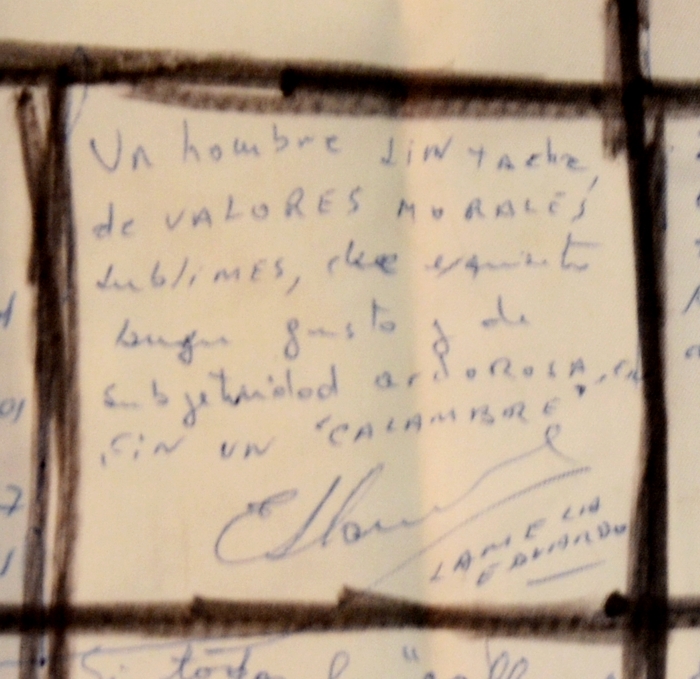 Un hombre SIN tacha,
de VALORES MORALES
subliMES, de exquisito
buen gusto y de
subjetividad ardorosa, en
FIN UN "CALAMBRE"
LAMELA
EDUARDO
Si toda l "call